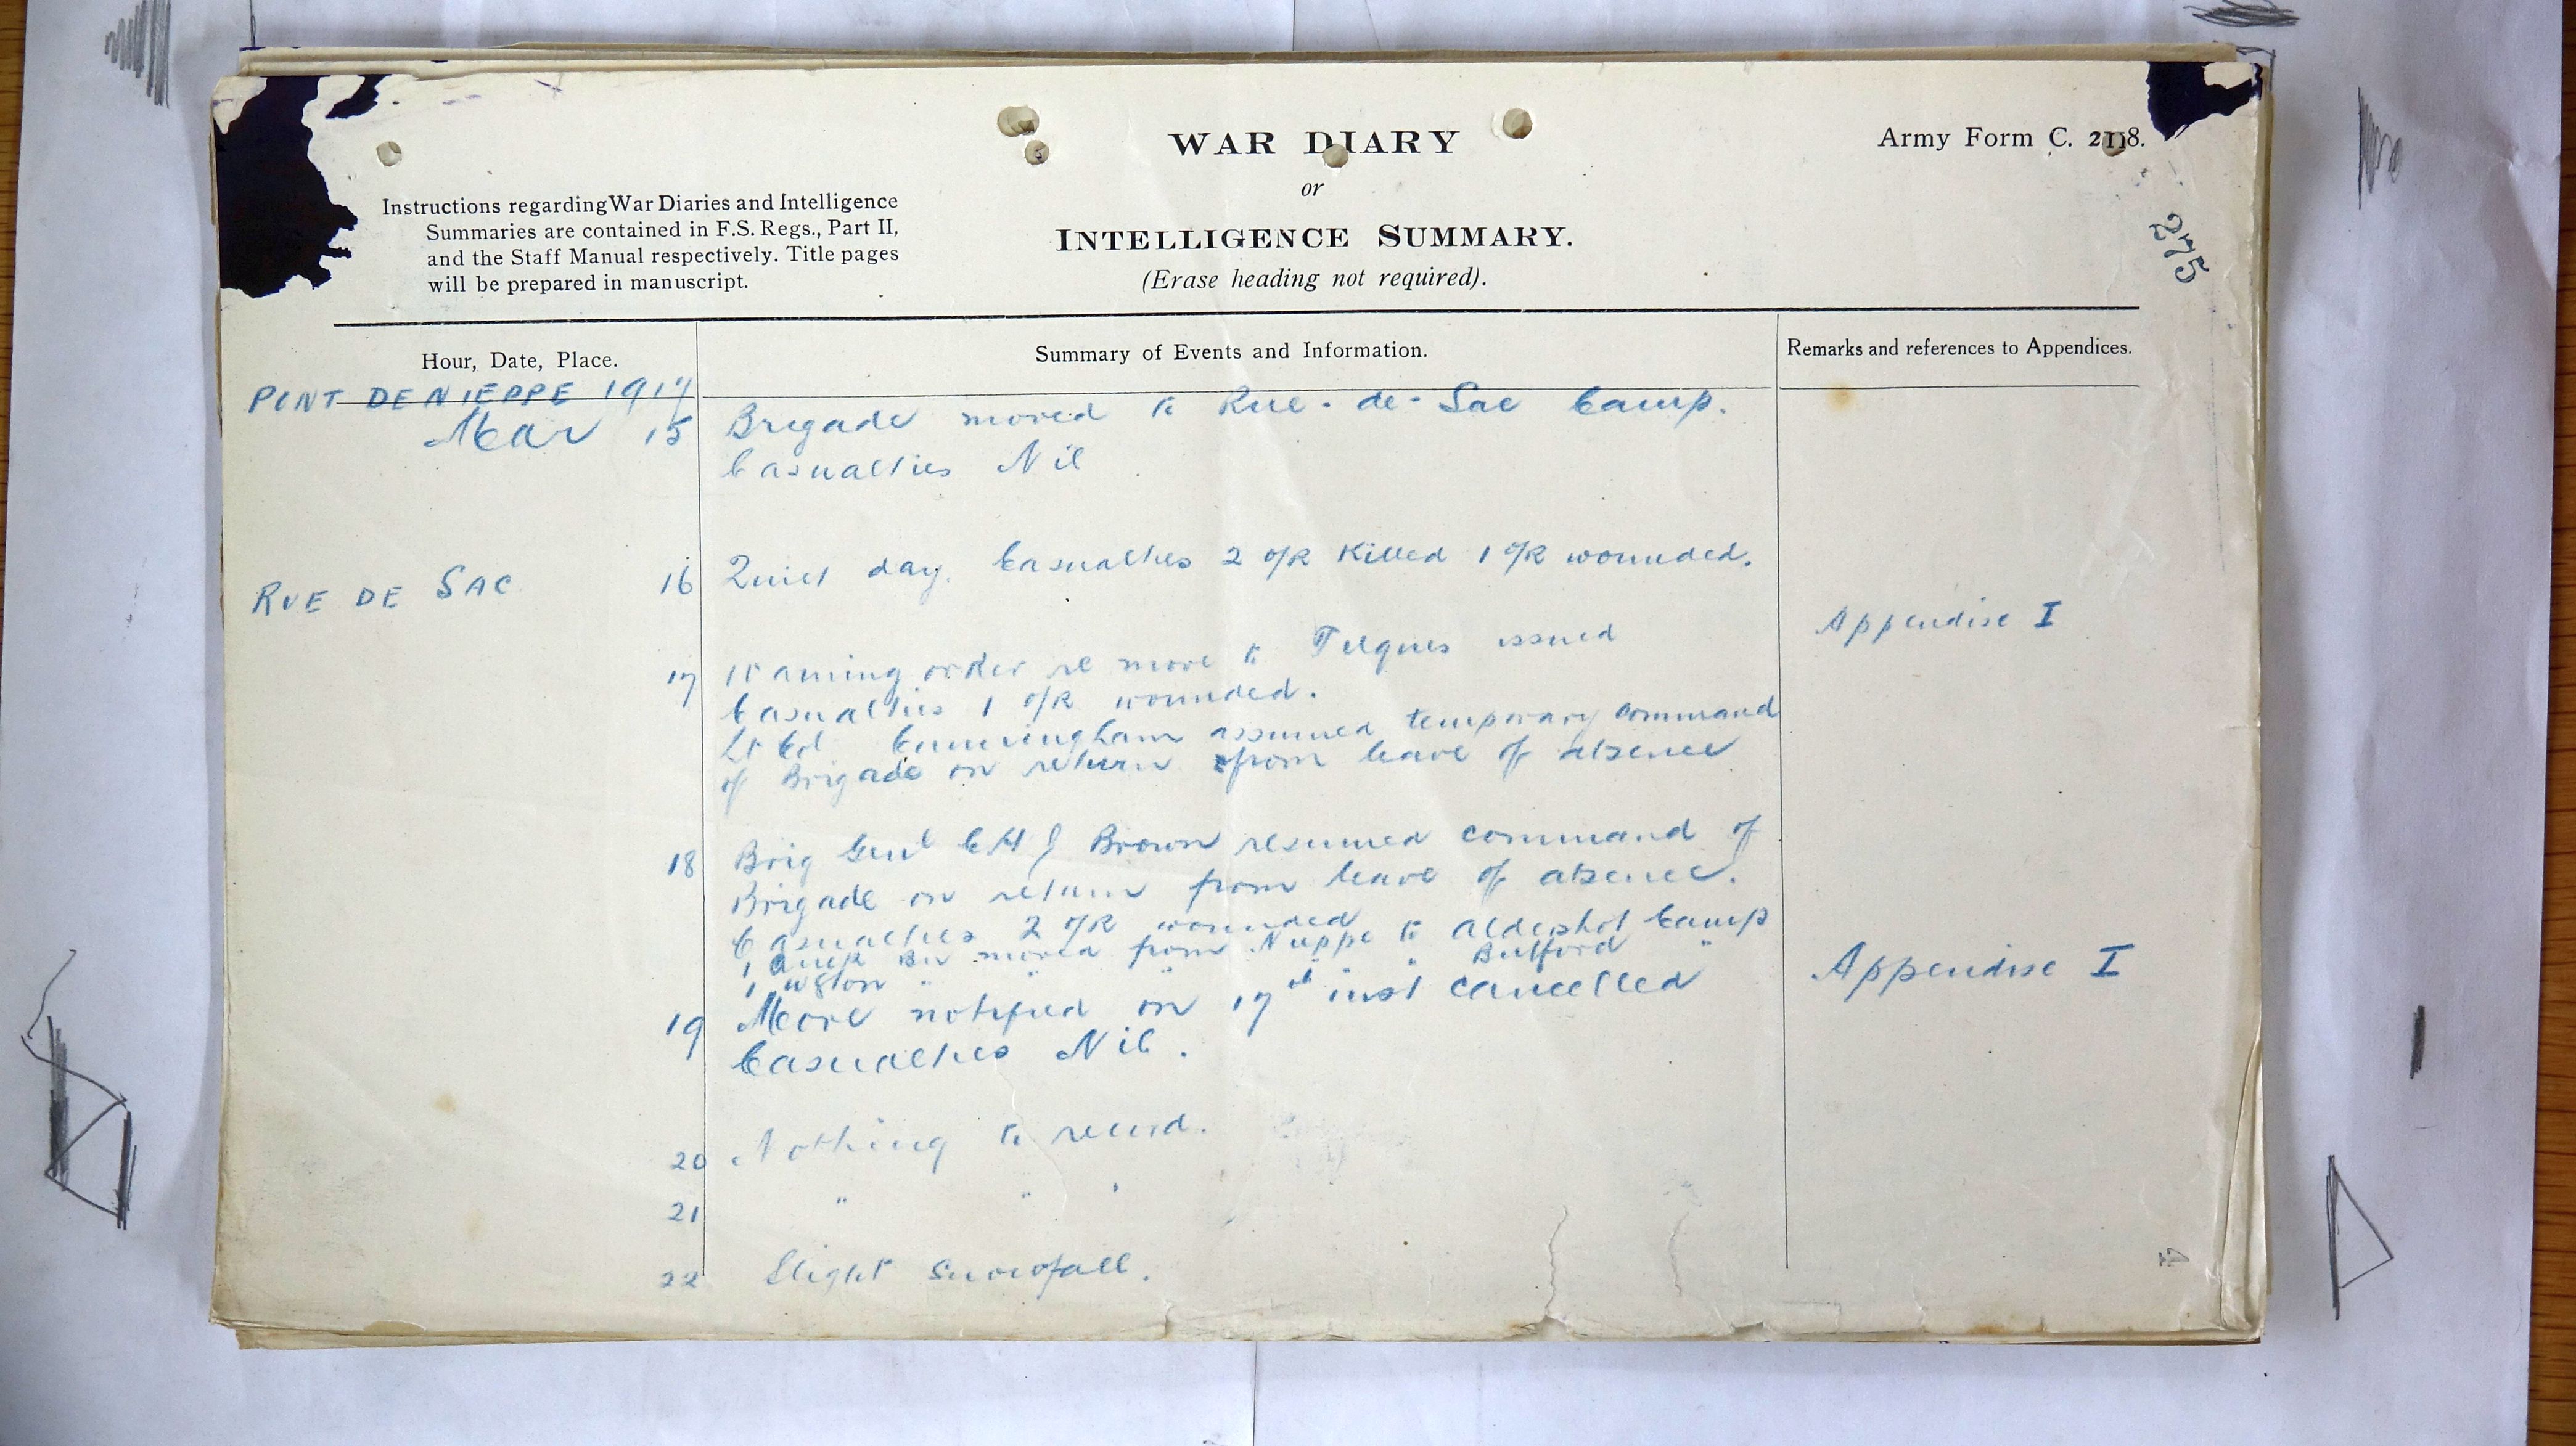 WAR DIARY
or
INTELLIGENCE SUMMARY.
(Erase heading not required).
Army Form C. 2118.
275
Instructions regarding War Diaries and Intelligence
Summaries are contained in F.S. Regs., Part II,
and the Staff Manual respectively. Title pages
will be prepared in manuscript.
Hour, Date, Place.
Summary of Events and Information.
Remarks and references to Appendices.
PONT DE NIEPPE 1917
Mar 15 Brigade moved to Rue-de-Sac Camp.
Casualties Nil
RUE DE SAC 16 Quiet day. Casualties 2 O/R Killed 1 O/R wounded.
17 Warning order re move to Tilques issued Appendise I
Casualties 1 O/R wounded.
Lt Col Cunningham assumed temporary command
of Brigade on return from leave of absence
18 Brig Genl C H J Brown resumed command of
Brigade on return from leave of absence.
Casualties 2 O/R wounded
1 Auck Bn moved from Nieppe to Aldershot Camp
1 Wgton " " " " " Bulford "
19 Move notified on 17th inst cancelled Appendise I
Casualties Nil.
20 Nothing to record.
21 " " "
22 Slight snowfall.